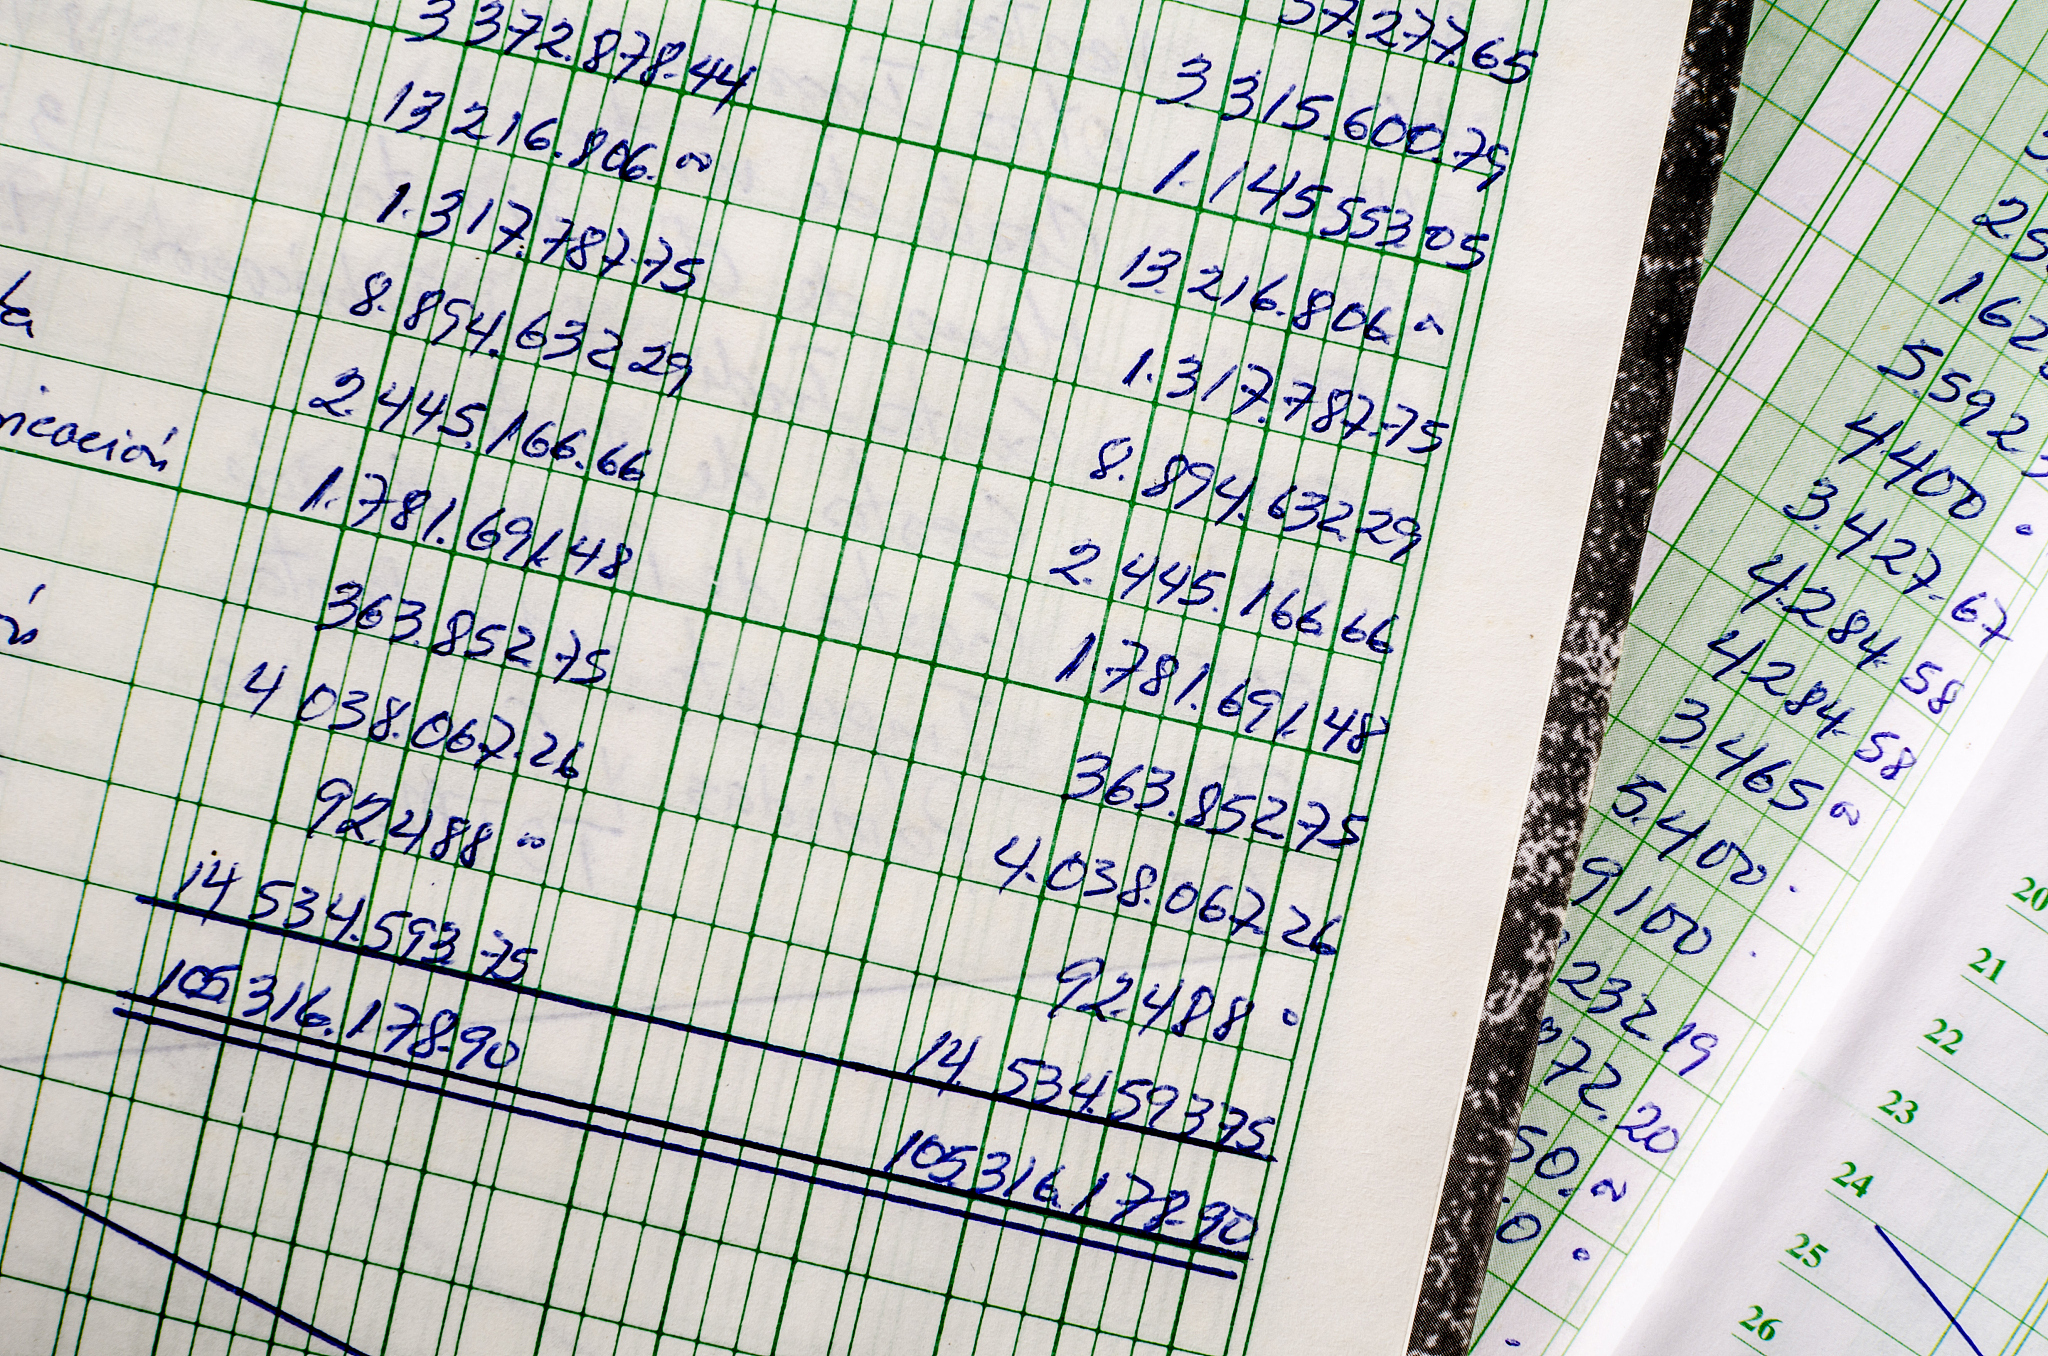 3372.878.44 57.277.65
13 216.806.00 3.315.600.79
1.317.787.75 1.145 553 05
8.894.632 29 13.216.806 00
2.445.166.66 1.317.787.75
icación 1.781.691.48 8.894.632.29
363.852 75 2.445.166 66
4 038.067.26 1.781.691.48
92.488 00 363.852 75
14 534.593 75 4.038.067.26
105 316.178.90 92.488 0
14. 534.593 75
105.316.178.90
1.62
5.592
4.400 .
3.427.67
4.284.58
4 284.58
3.465 00
5.400 .
9 100 .
232 19
72.20
50.00
0 .
20
21
22
23
24
25
26